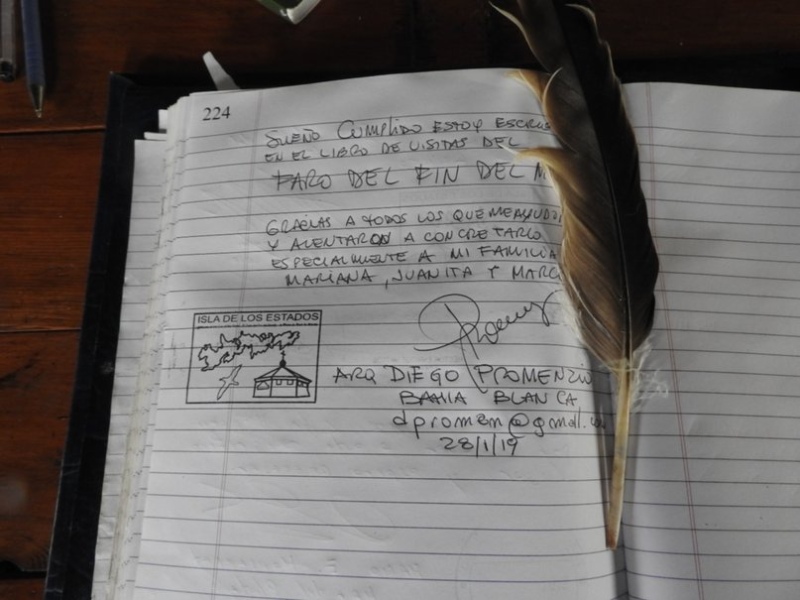 224
SUEÑO CUMPLIDO ESTOY
EN EL LIBRO DE VISITAS DEL
FARO DEL FIN DEL M
GRACIAS A TODOS LOS QUE ME
Y ALENTARON A CONCRETARLO
ESPECIALMENTE A MI FAMILIA
MARIANA, JUANITA Y
ISLA DE LOS ESTADOS
ARQ DIEGO PROMENZIO
BAHIA BLANCA
dpromen@gmail.
28/1/19